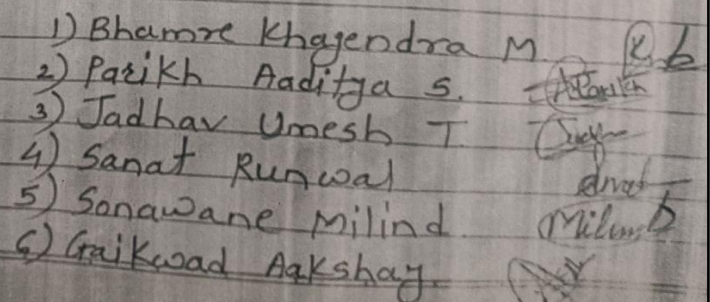 1) Bhamre Khagendra M.
2) Parikh Aaditya S. AParikh
3) Jadhav Umesh T
4) Sanat Runwal
5) Sonawane Milind
6) Gaikwad Aakshay